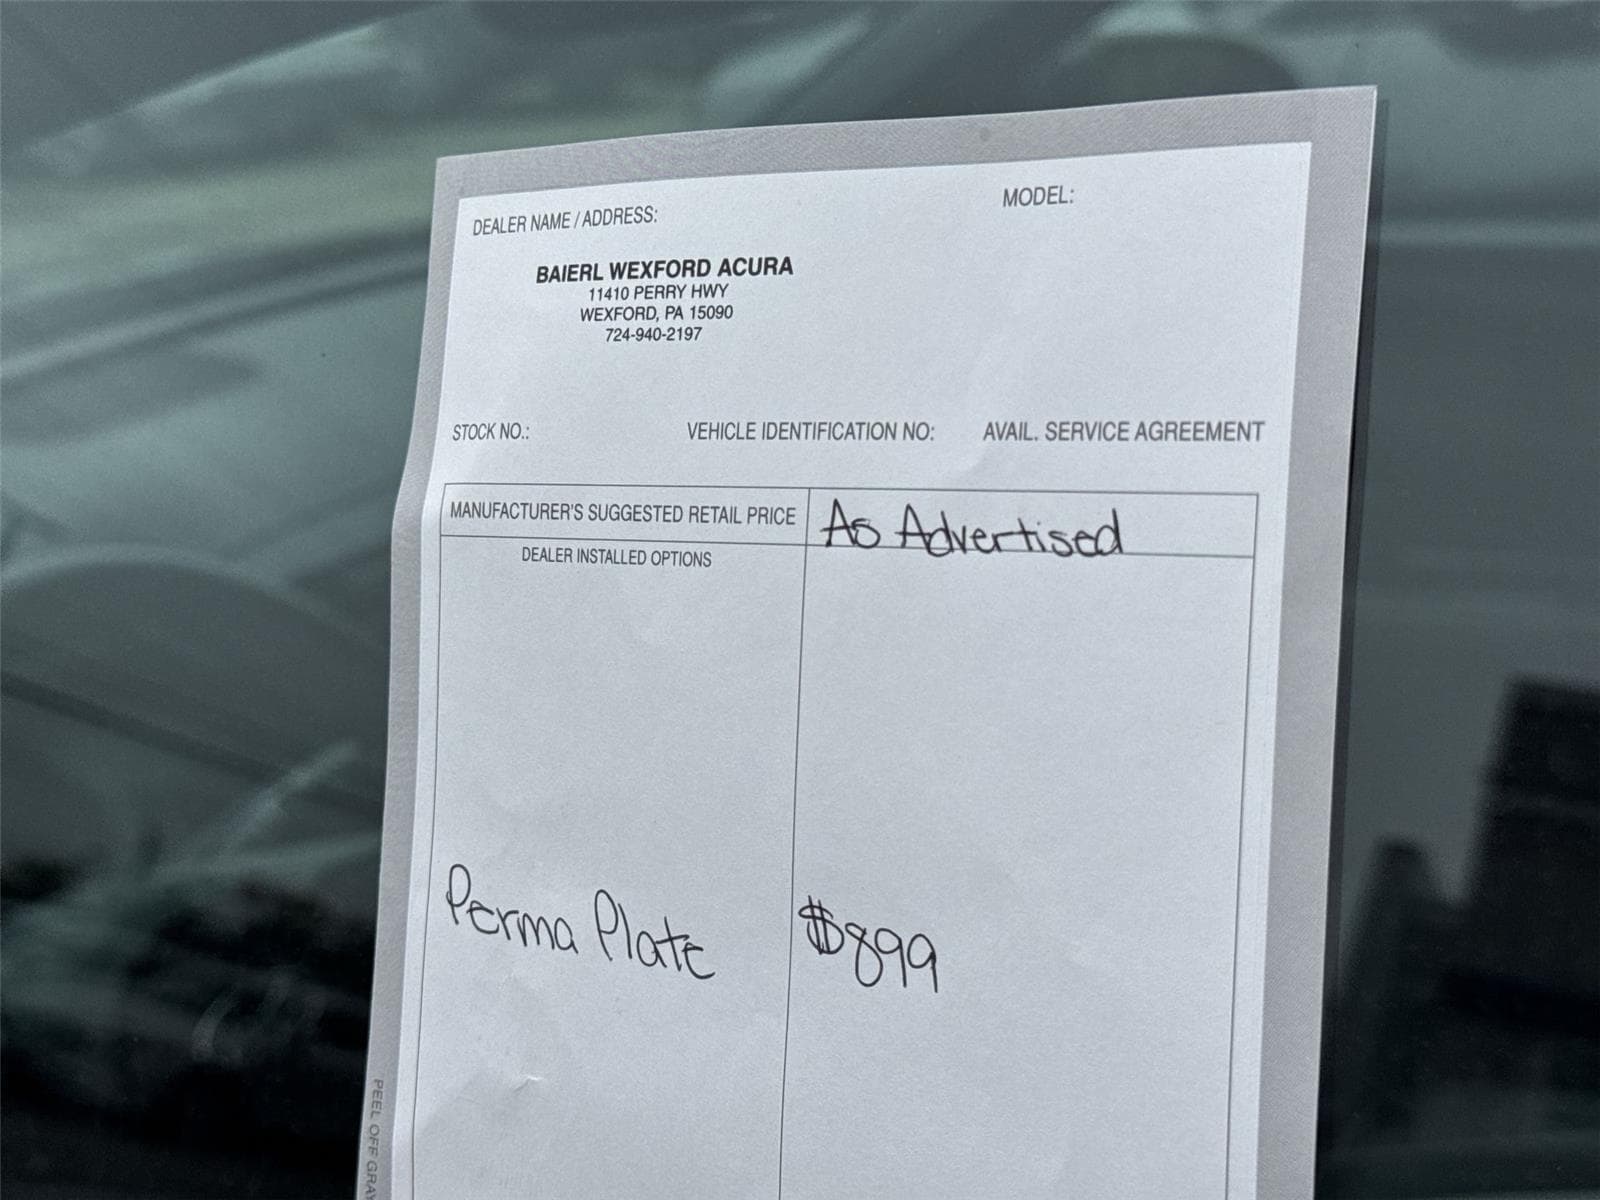 DEALER NAME / ADDRESS:
MODEL:
BAIERL WEXFORD ACURA
11410 PERRY HWY
WEXFORD, PA 15090
724-940-2197
STOCK NO.:
VEHICLE IDENTIFICATION NO:
AVAIL. SERVICE AGREEMENT
MANUFACTURER'S SUGGESTED RETAIL PRICE
As Advertised
DEALER INSTALLED OPTIONS
Perma Plate
$899
PEEL OFF GRAY